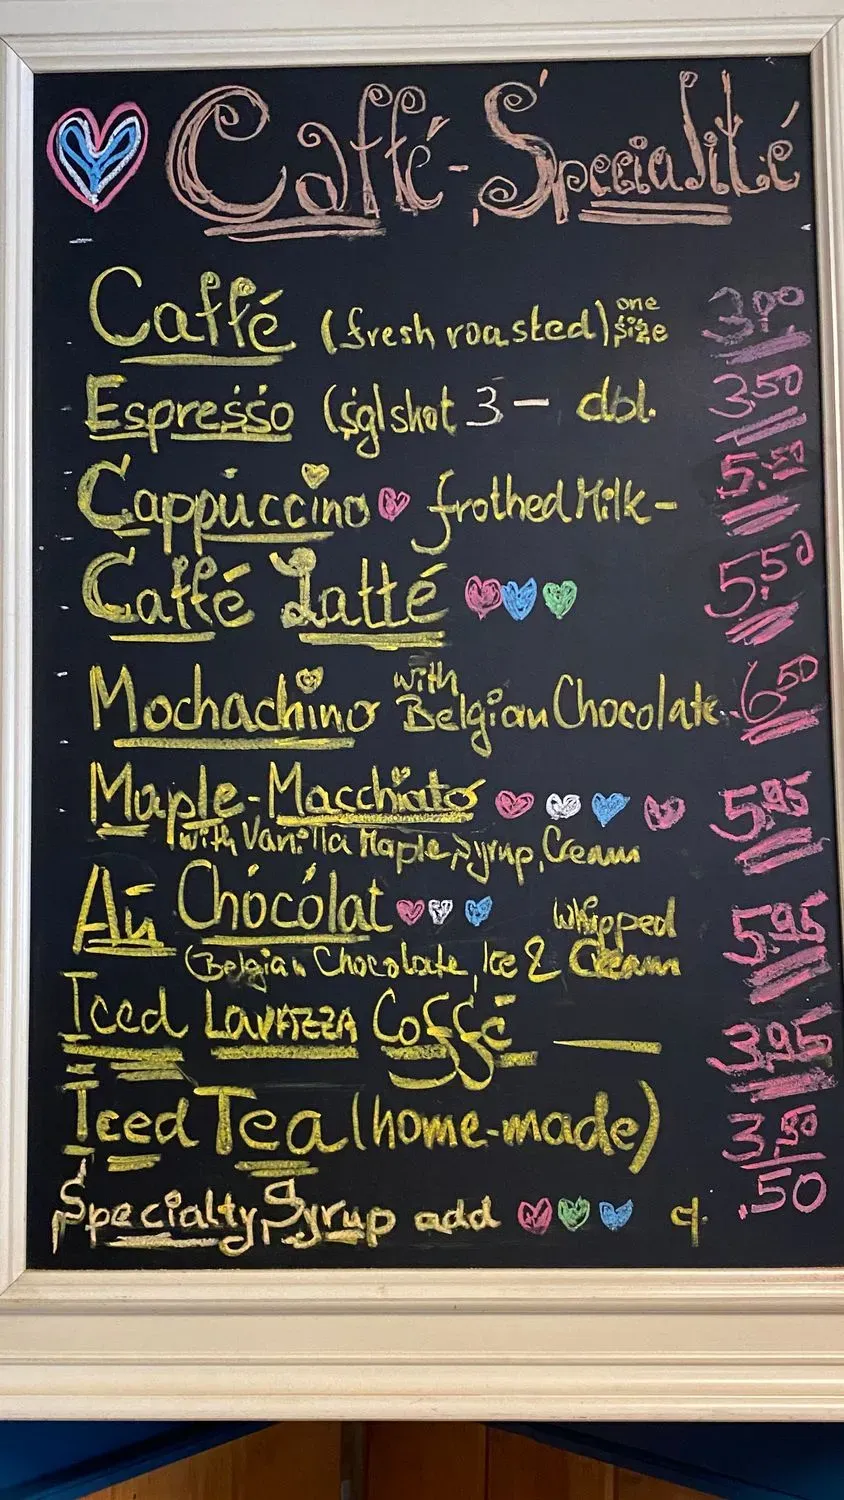 Caffé-Spécialité
Caffé (fresh roasted) one size 3.00
Espresso (sgl shot 3 — dbl. 3.50
Cappuccino frothed Milk - 5.50
Caffé Latté 5.50
Mochachino with Belgian Chocolate 6.50
Maple-Macchiato 5.95
with Vanilla Maple Syrup, Cream
Au Chócólat 5.95
(Belgian Chocolate, Ice & Whipped Cream
Iced LAVAZZA Coffé — 3.95
Iced Tea (home-made) 3.50
Specialty Syrup add ¢ .50